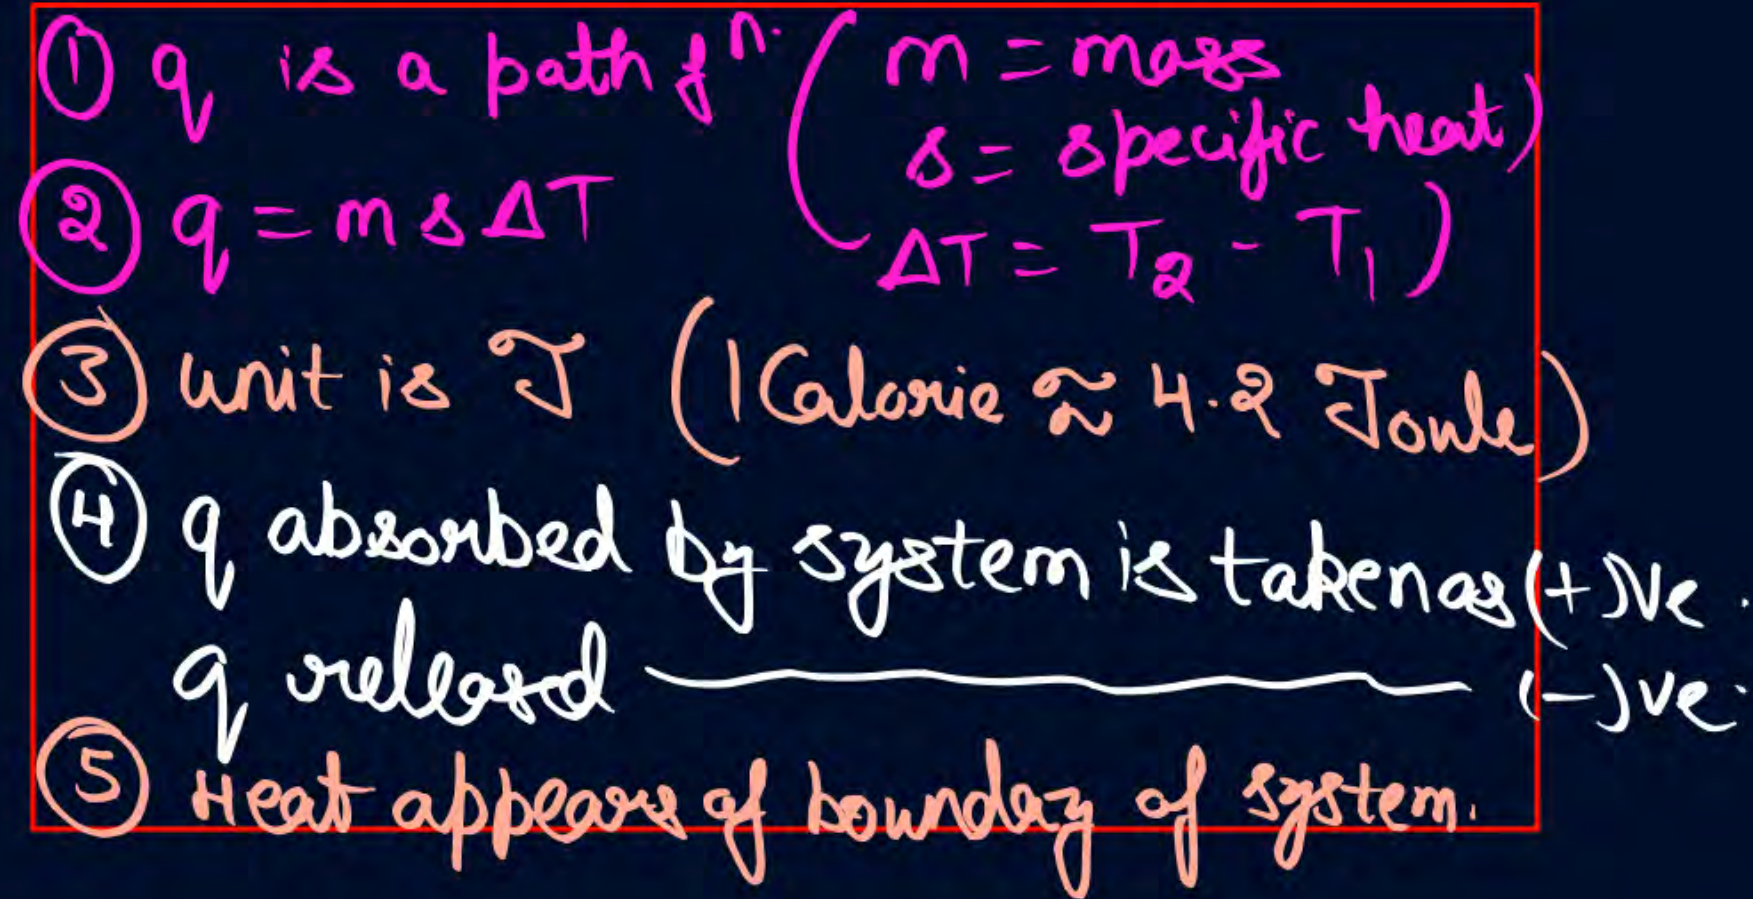 ① q is a path fⁿ. ( m = mass
s = specific heat)
② q = m s ΔT
ΔT = T₂ - T₁ )
③ unit is J (1 Calorie ≈ 4.2 Joule)
④ q absorbed by system is taken as (+)ve.
q releasd ———— (-)ve.
⑤ Heat appears of boundary of system.